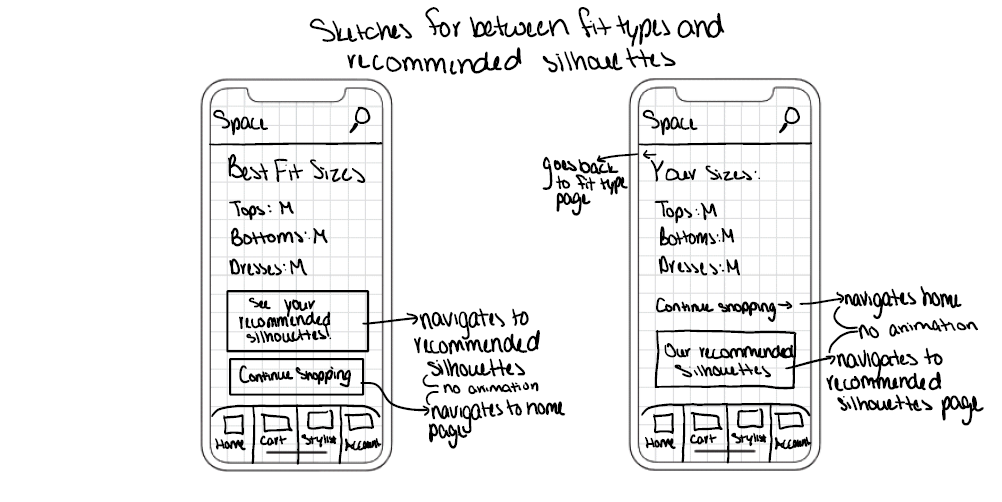 Sketches for between fit types and
recommended silhouettes
Space
Best Fit Sizes
Tops: M
Bottoms: M
Dresses: M
See your
recommended
silhouettes!
Continue Shopping
Home
Cart
Stylist
Account
navigates to
recommended
silhouettes
no animation
navigates to home
page
Space
goes back
to fit type
page
←
Your Sizes:
Tops: M
Bottoms: M
Dresses: M
Continue shopping →
Our recommended
silhouettes
Home
Cart
Stylist
Account
navigates home
no animation
navigates to
recommended
silhouettes page